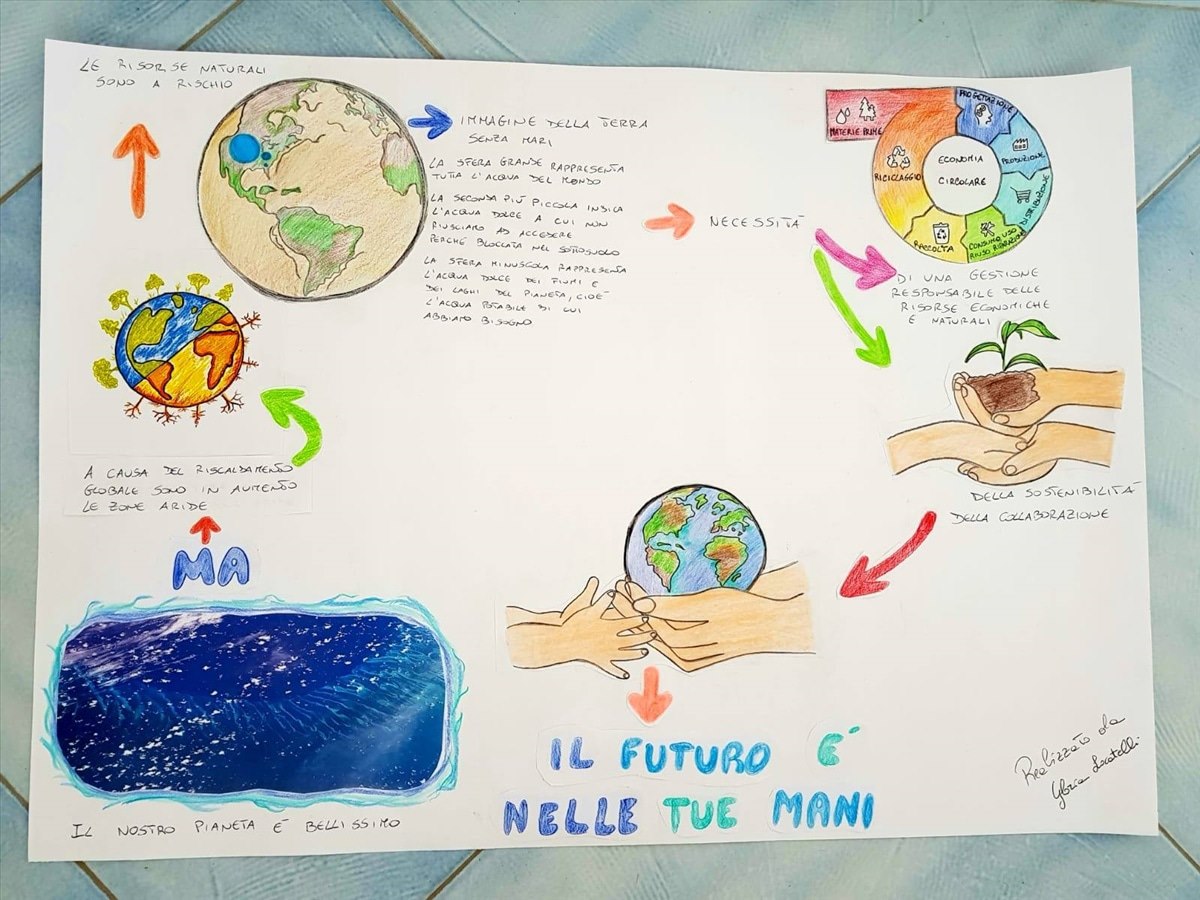 LE RISORSE NATURALI
SONO A RISCHIO
IMMAGINE DELLA TERRA
SENZA MARI
LA SFERA GRANDE RAPPRESENTA
TUTTA L'ACQUA DEL MONDO
LA SECONDA PIÙ PICCOLA INDICA
L'ACQUA DOLCE A CUI NON
RIUSCIAMO AD ACCEDERE
PERCHÉ BLOCCATA NEL SOTTOSUOLO
LA SFERA MINUSCOLA RAPPRESENTA
L'ACQUA DOLCE DEI FIUMI E
DEI LAGHI DEL PIANETA, CIOÈ
L'ACQUA POTABILE DI CUI
ABBIAMO BISOGNO
NECESSITÀ
MATERIE PRIME
PROGETTAZIONE
PRODUZIONE
DISTRIBUZIONE
CONSUMO, USO
RIUSO RIPARAZIONE
RACCOLTA
RICICLAGGIO
ECONOMIA
CIRCOLARE
DI UNA GESTIONE
RESPONSABILE DELLE
RISORSE ECONOMICHE
E NATURALI
DELLA SOSTENIBILITÀ
DELLA COLLABORAZIONE
A CAUSA DEL RISCALDAMENTO
GLOBALE SONO IN AUMENTO
LE ZONE ARIDE
MA
IL NOSTRO PIANETA È BELLISSIMO
IL FUTURO È
NELLE TUE MANI
Realizzato da
Gloria Locatelli